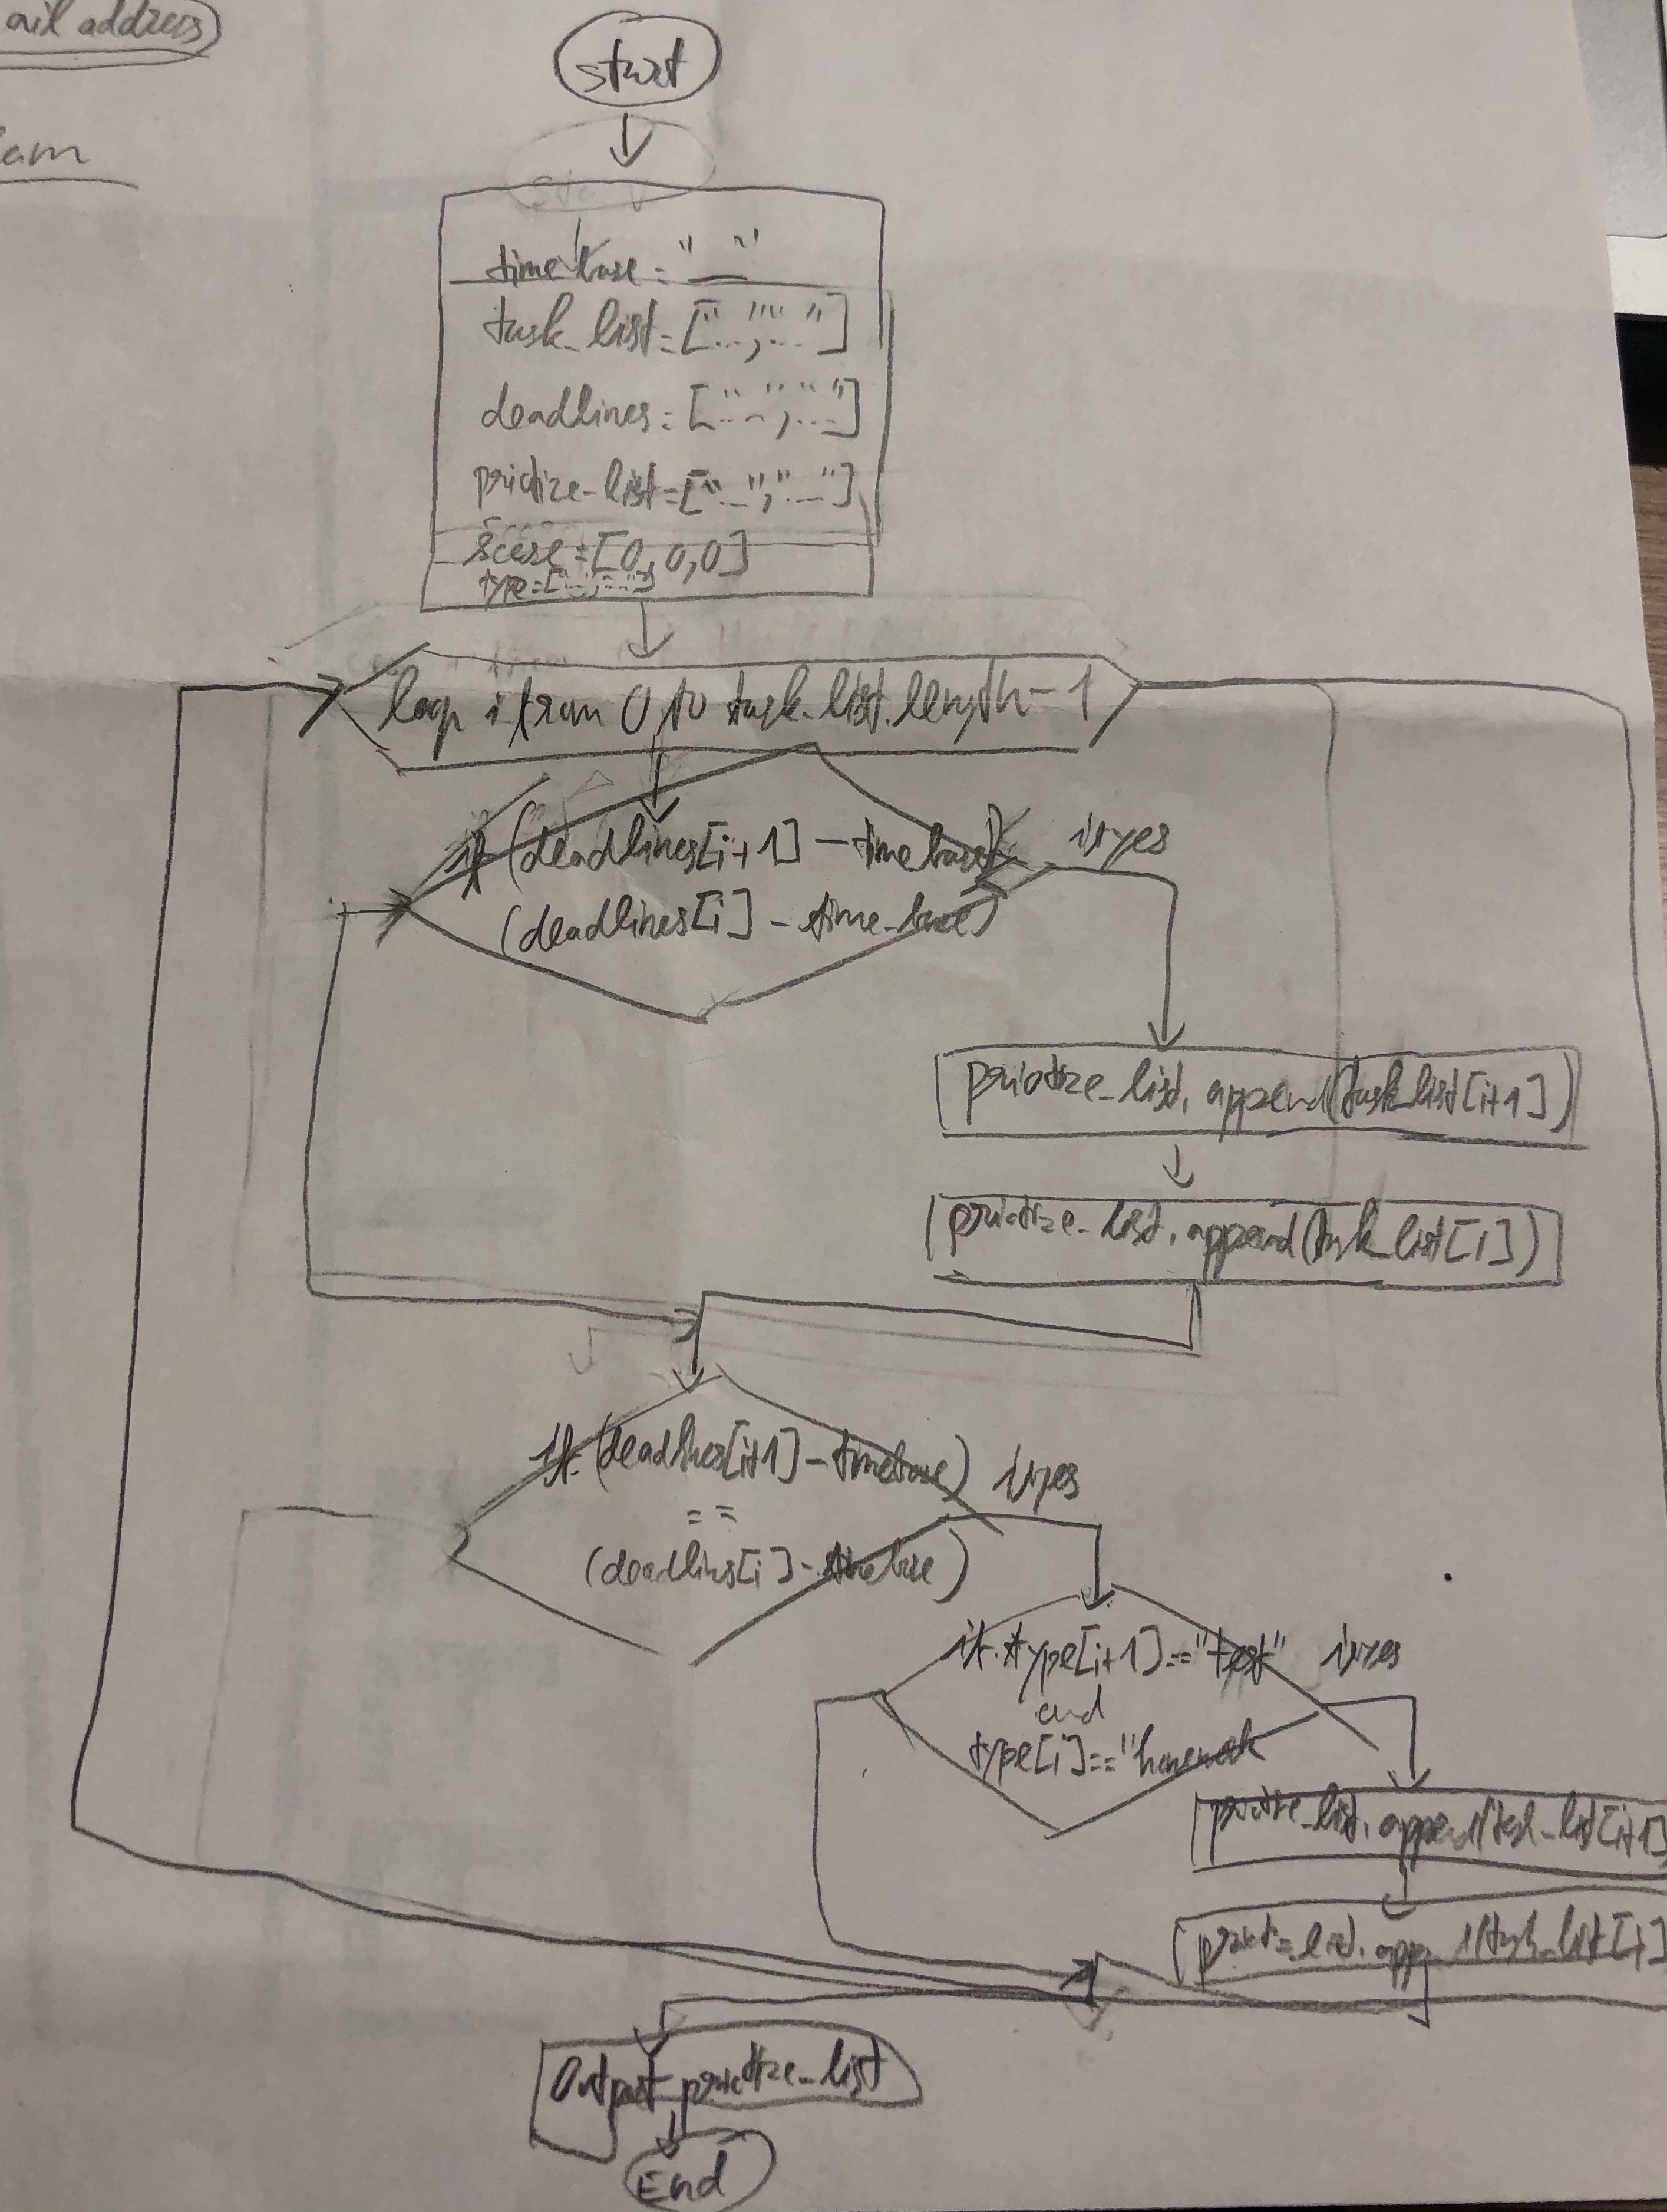 ail address
am
start
time base = "__"
task_list = ["...","..."]
deadlines = ["...","..."]
priotize_list = ["...","..."]
score = [0,0,0]
type = ["...","..."]
loop i from 0 to task_list.length-1
if (deadlines[i+1] - timebase)
<
(deadlines[i] - time_base)
if yes
priotize_list.append(task_list[i+1])
priotize_list.append(task_list[i])
if (deadlines[i+1] - timebase)
==
(deadlins[i] - timebase)
if yes
if type[i+1] == "test"
and
type[i] == "homework
if yes
priotize_list.append(task_list[i+1]
task_list[i]
Output priotize_list
End